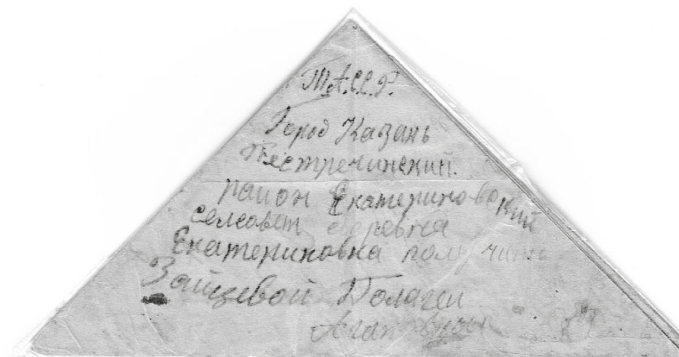 Т.А.С.С.Р.
Город Казань
Пестречинский
район Екатериновский
селсовет деревня
Екатериновка получить
Зайцевой Полагеи